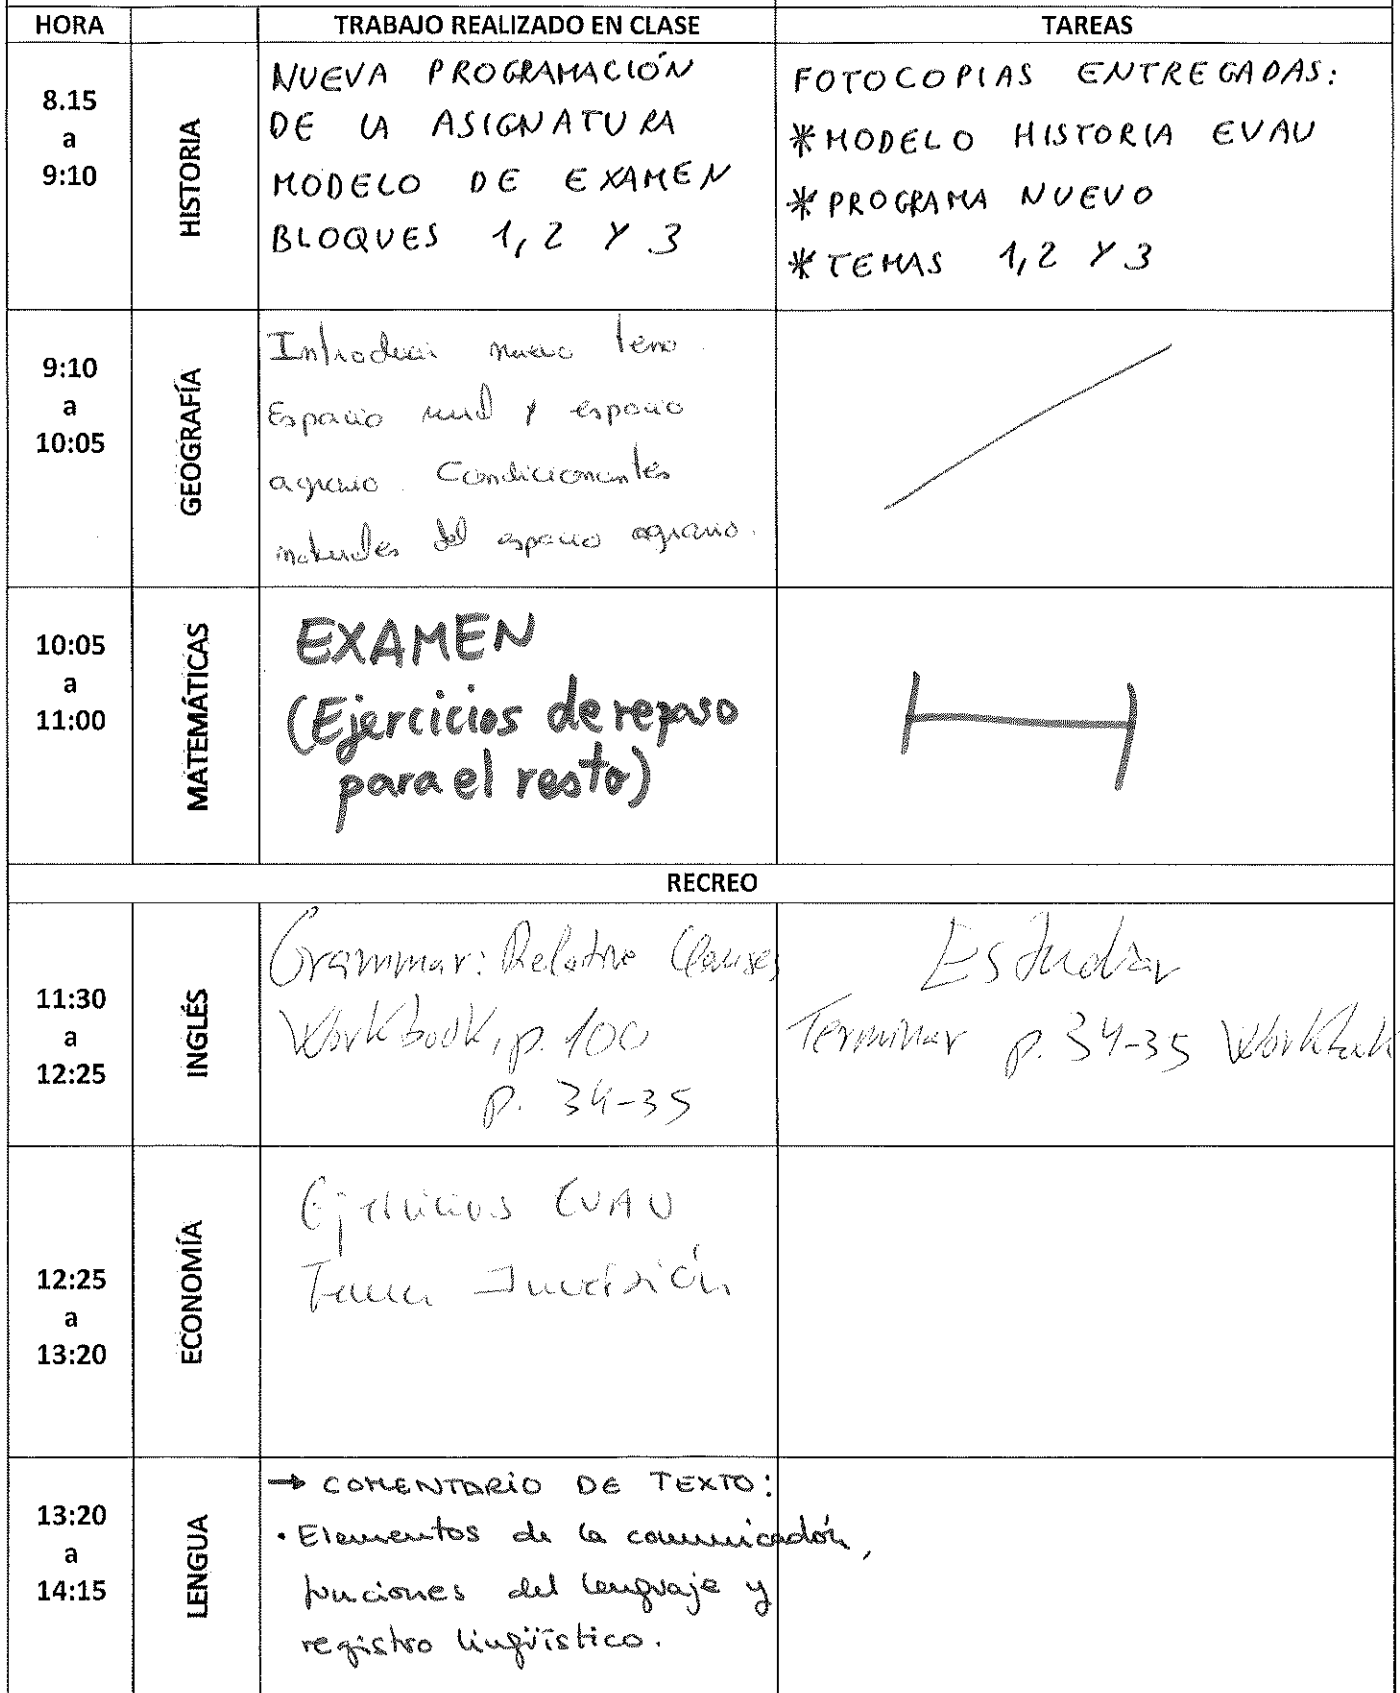 HORA TRABAJO REALIZADO EN CLASE TAREAS
8.15
a
9:10
HISTORIA
NUEVA PROGRAMACIÓN
DE LA ASIGNATURA
MODELO DE EXAMEN
BLOQUES 1, 2 Y 3
FOTOCOPIAS ENTREGADAS:
* MODELO HISTORIA EVAU
* PROGRAMA NUEVO
* TEMAS 1, 2 Y 3
9:10
a
10:05
GEOGRAFÍA
Introducir nuevo tema.
Espacio rural y espacio
agrario. Condicionantes
naturales del espacio agrario.
10:05
a
11:00
MATEMÁTICAS
EXAMEN
(Ejercicios de repaso
para el resto)
RECREO
11:30
a
12:25
INGLÉS
Grammar: Relative Clauses
Workbook, p. 100
p. 34-35
Estudiar
Terminar p. 34-35 Workbook
12:25
a
13:20
ECONOMÍA
Ejercicios EVAU
Tema Inversión
13:20
a
14:15
LENGUA
→ COMENTARIO DE TEXTO:
· Elementos de la comunicación,
funciones del lenguaje y
registro lingüístico.